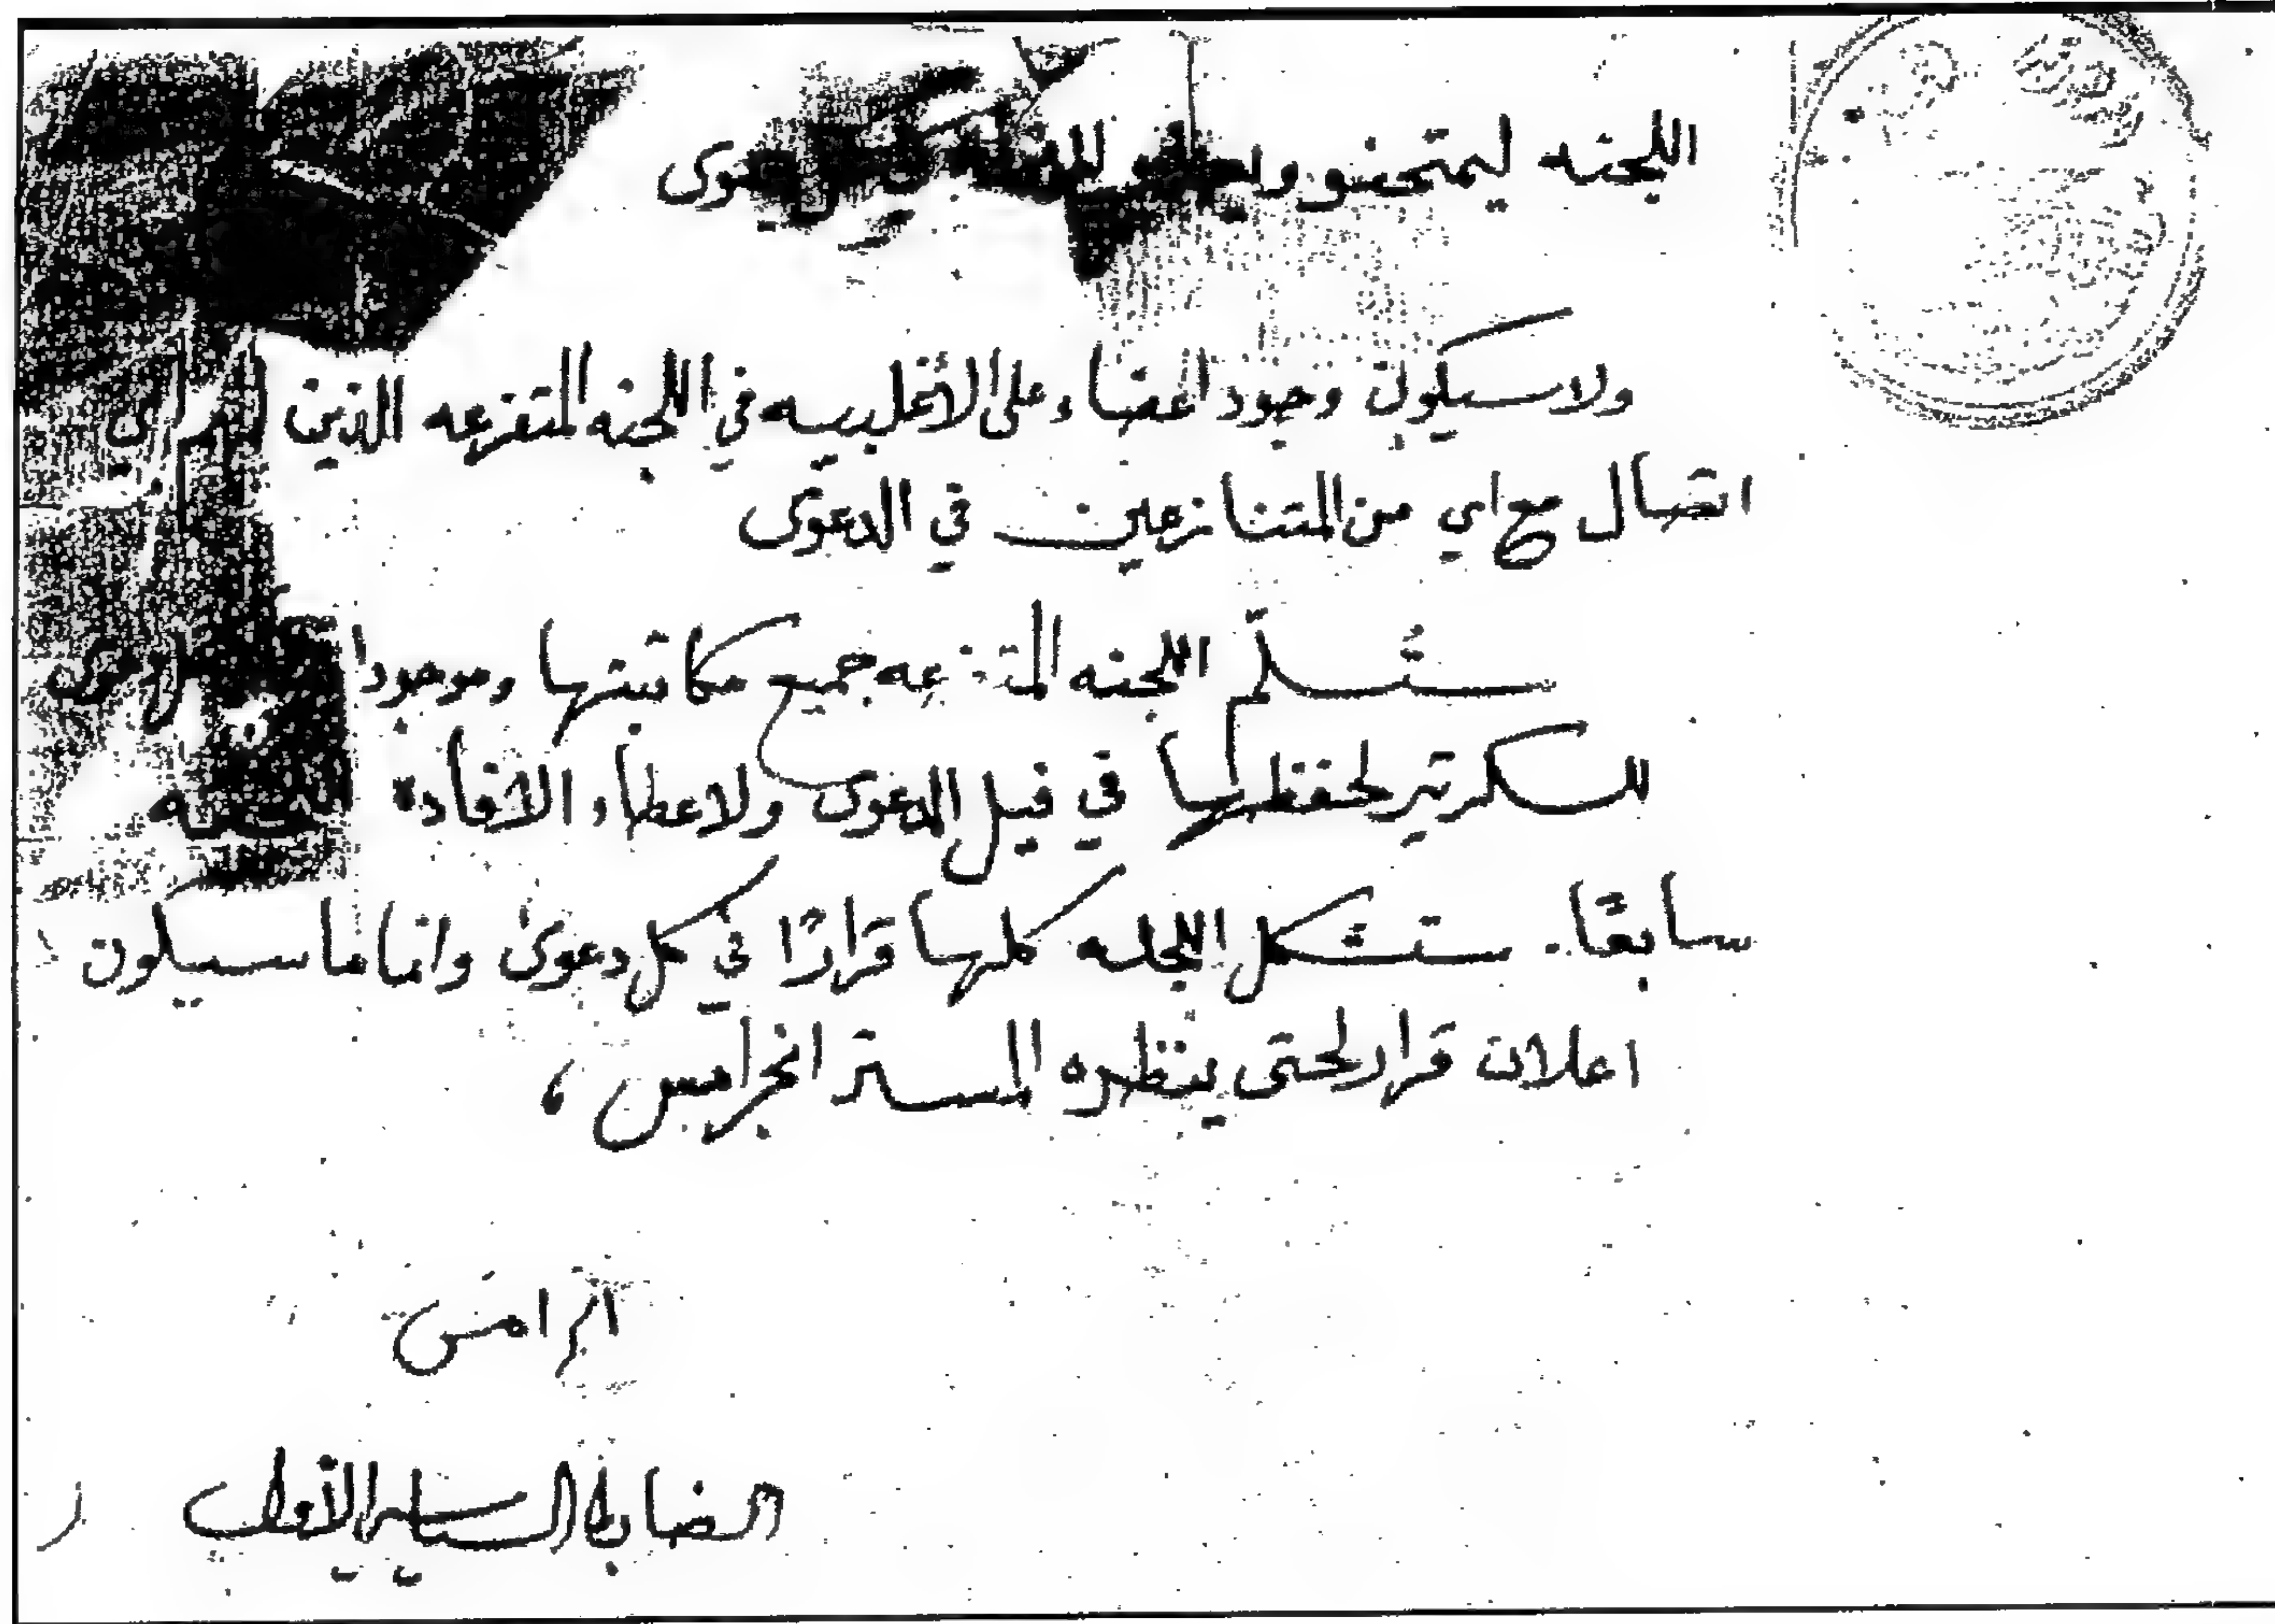 اللجنه ليمتحنو
ولا سيكون وجود اعضاء على الاغلبيه في اللجنه المتفرعه الذين لهم اي
اتصال مع اي من المتنازعين في الدعوى
ستُسلّم اللجنه المتفرعه جميع مكاتبتها وموجودا
للسكرتير لحفظها في فيل الدعوى ولاعطاء الافاده
سابقًا. ستشكل اللجنه كلها قرارًا في كل دعوى وانما ما سيكون
اعلان قرار لحتى ينظره المستر انجرامس ،
انجرامس
الضابط السياسي الأول